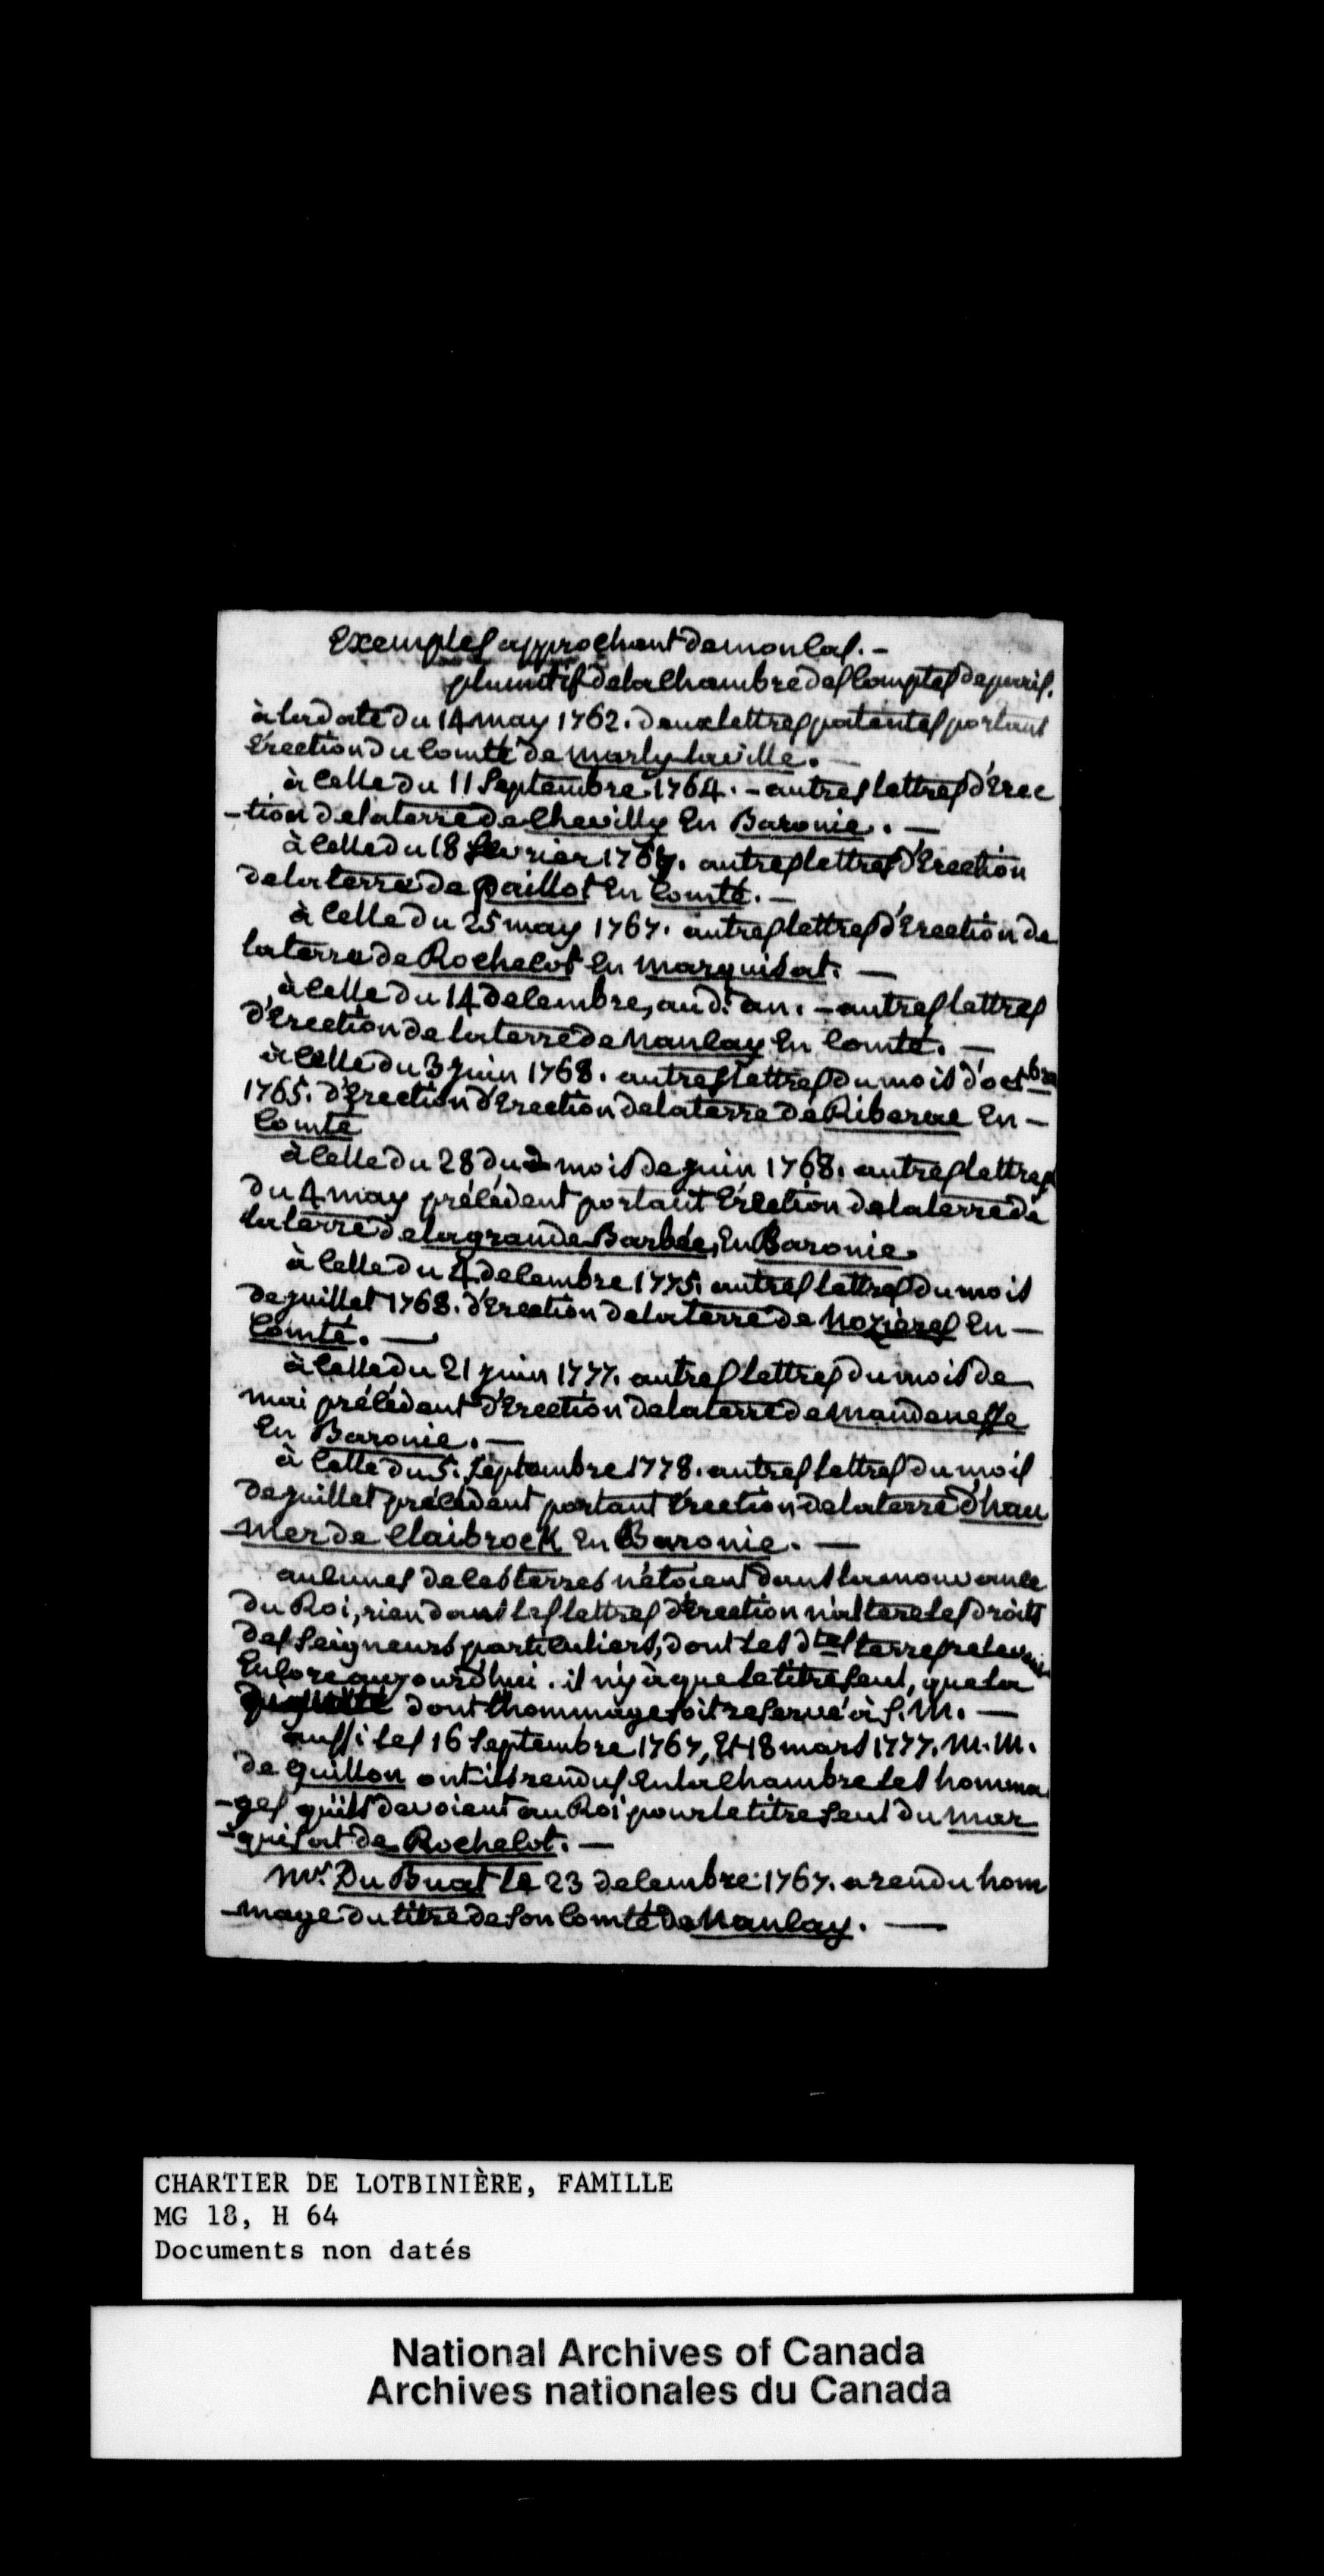 Exemples approchant de mon cas. -
plumitif de la Chambre des Comptes de paris.
à la date du 14 may 1762. deux lettres patentes portant
Érection du Comté de Marly la ville. -
à Celle du 11 Septembre 1764. - autres lettres d'Érec
-tion de la terre de Chevilly En Baronie. -
à Celle du 18 fevrier 1767. autres lettres d'Érection
de la terre de paillot En Comté. -
à Celle du 25 may 1767. autres lettres d'Érection de
la terre de Rochelot En Marquisat. -
à Celle du 14 decembre, aud. an. - autres lettres
d'Érection de la terre de Nançay En Comté. -
à Celle du 3 Juin 1768. autres lettres du mois d'octbre
1765. d'Érection d'Érection de la terre de Riberac En -
Comté
à Celle du 28 du d mois de Juin 1768. autres lettres
du 4 may précédent portant Érection de la terre de
la terre de la grande Barbée, En Baronie.
à Celle du 4 decembre 1775. autres lettres du mois
de Juillet 1768. d'Érection de la terre de Nozières En -
Comté. -
à Celle du 21 Juin 1777. autres lettres du mois de
mai précédent d'Érection de la terre de Mandenesse
En Baronie. -
à Celle du 5. Septembre 1778. autres lettres du mois
de Juillet précédent portant Érection de la terre d'hau
-Mer de Claibrock En Baronie. -
aucunes de ces terres n'étoient dans la mouvance
du Roi, rien dans les lettres d'Érection n'altere les droits
des Seigneurs particuliers, dont les dtes terres relevent
Encore aujourd'hui. il n'y à que le titre seul, que la
dont l'hommage soit reservé à S. M. -
aussi les 16 Septembre 1767, Et 18 mars 1777. M. M.
de Guillon ont ils rendus En la Chambre les homma
-ges qu'ils devoient au Roi pour le titre seul du Mar
-quisat de Rochelot. -
Mr. Du Buat le 23 decembre 1767. a rendu hom
-mage du titre de son Comté de Nançay. -
CHARTIER DE LOTBINIÈRE, FAMILLE
MG 18, H 64
Documents non datés
National Archives of Canada
Archives nationales du Canada